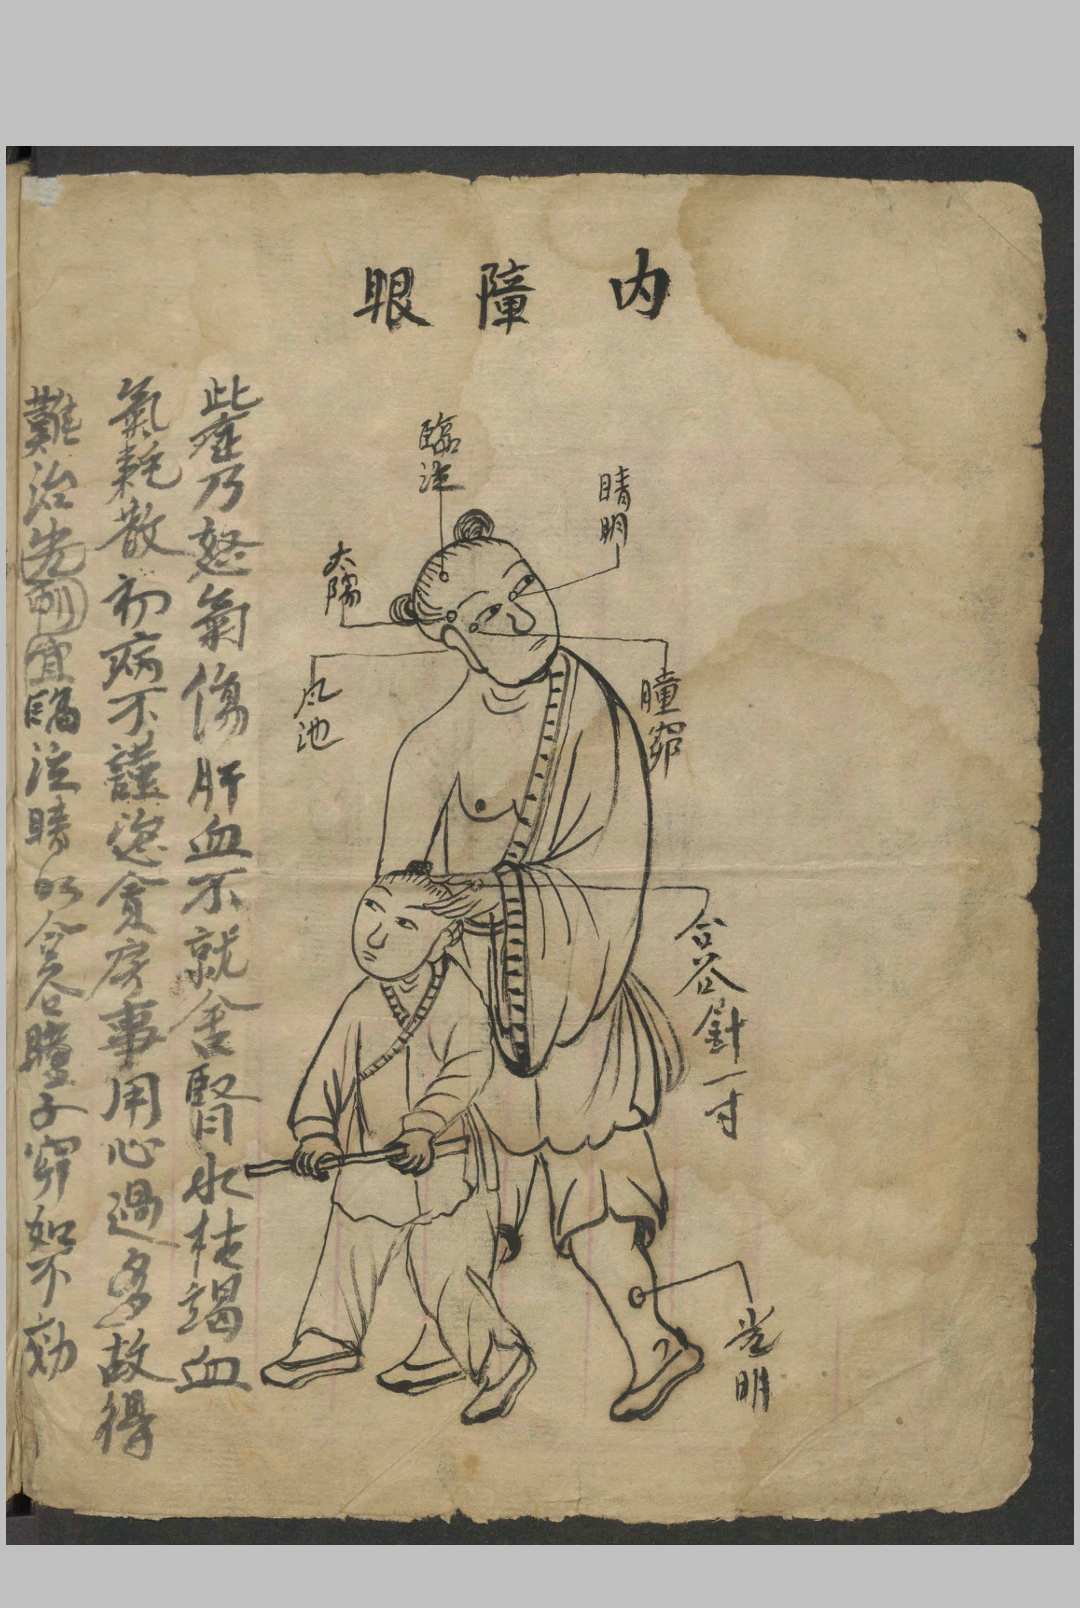 内障眼
睛明
臨泣
太陽
風池
瞳窌
合谷針一寸
光明
此症乃怒氣傷肝血不就舍腎水枯竭血
氣耗散初病不謹恣貪房事用心過多故得
難治先刺宜臨泣睛明合谷瞳子窌如不効